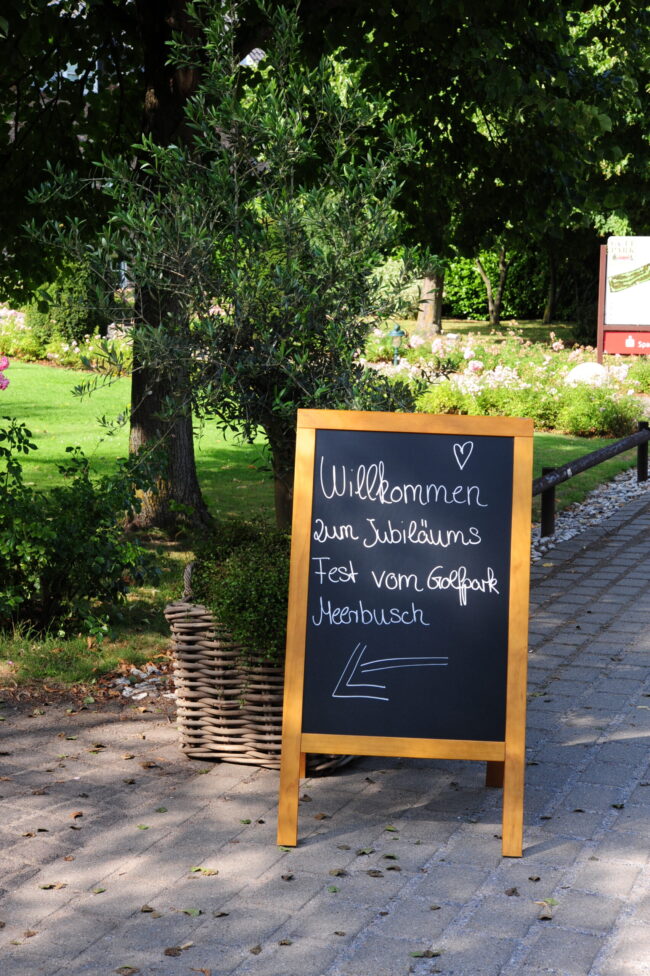 Willkommen
zum Jubiläums
Fest vom Golfpark
Meerbusch
PARK